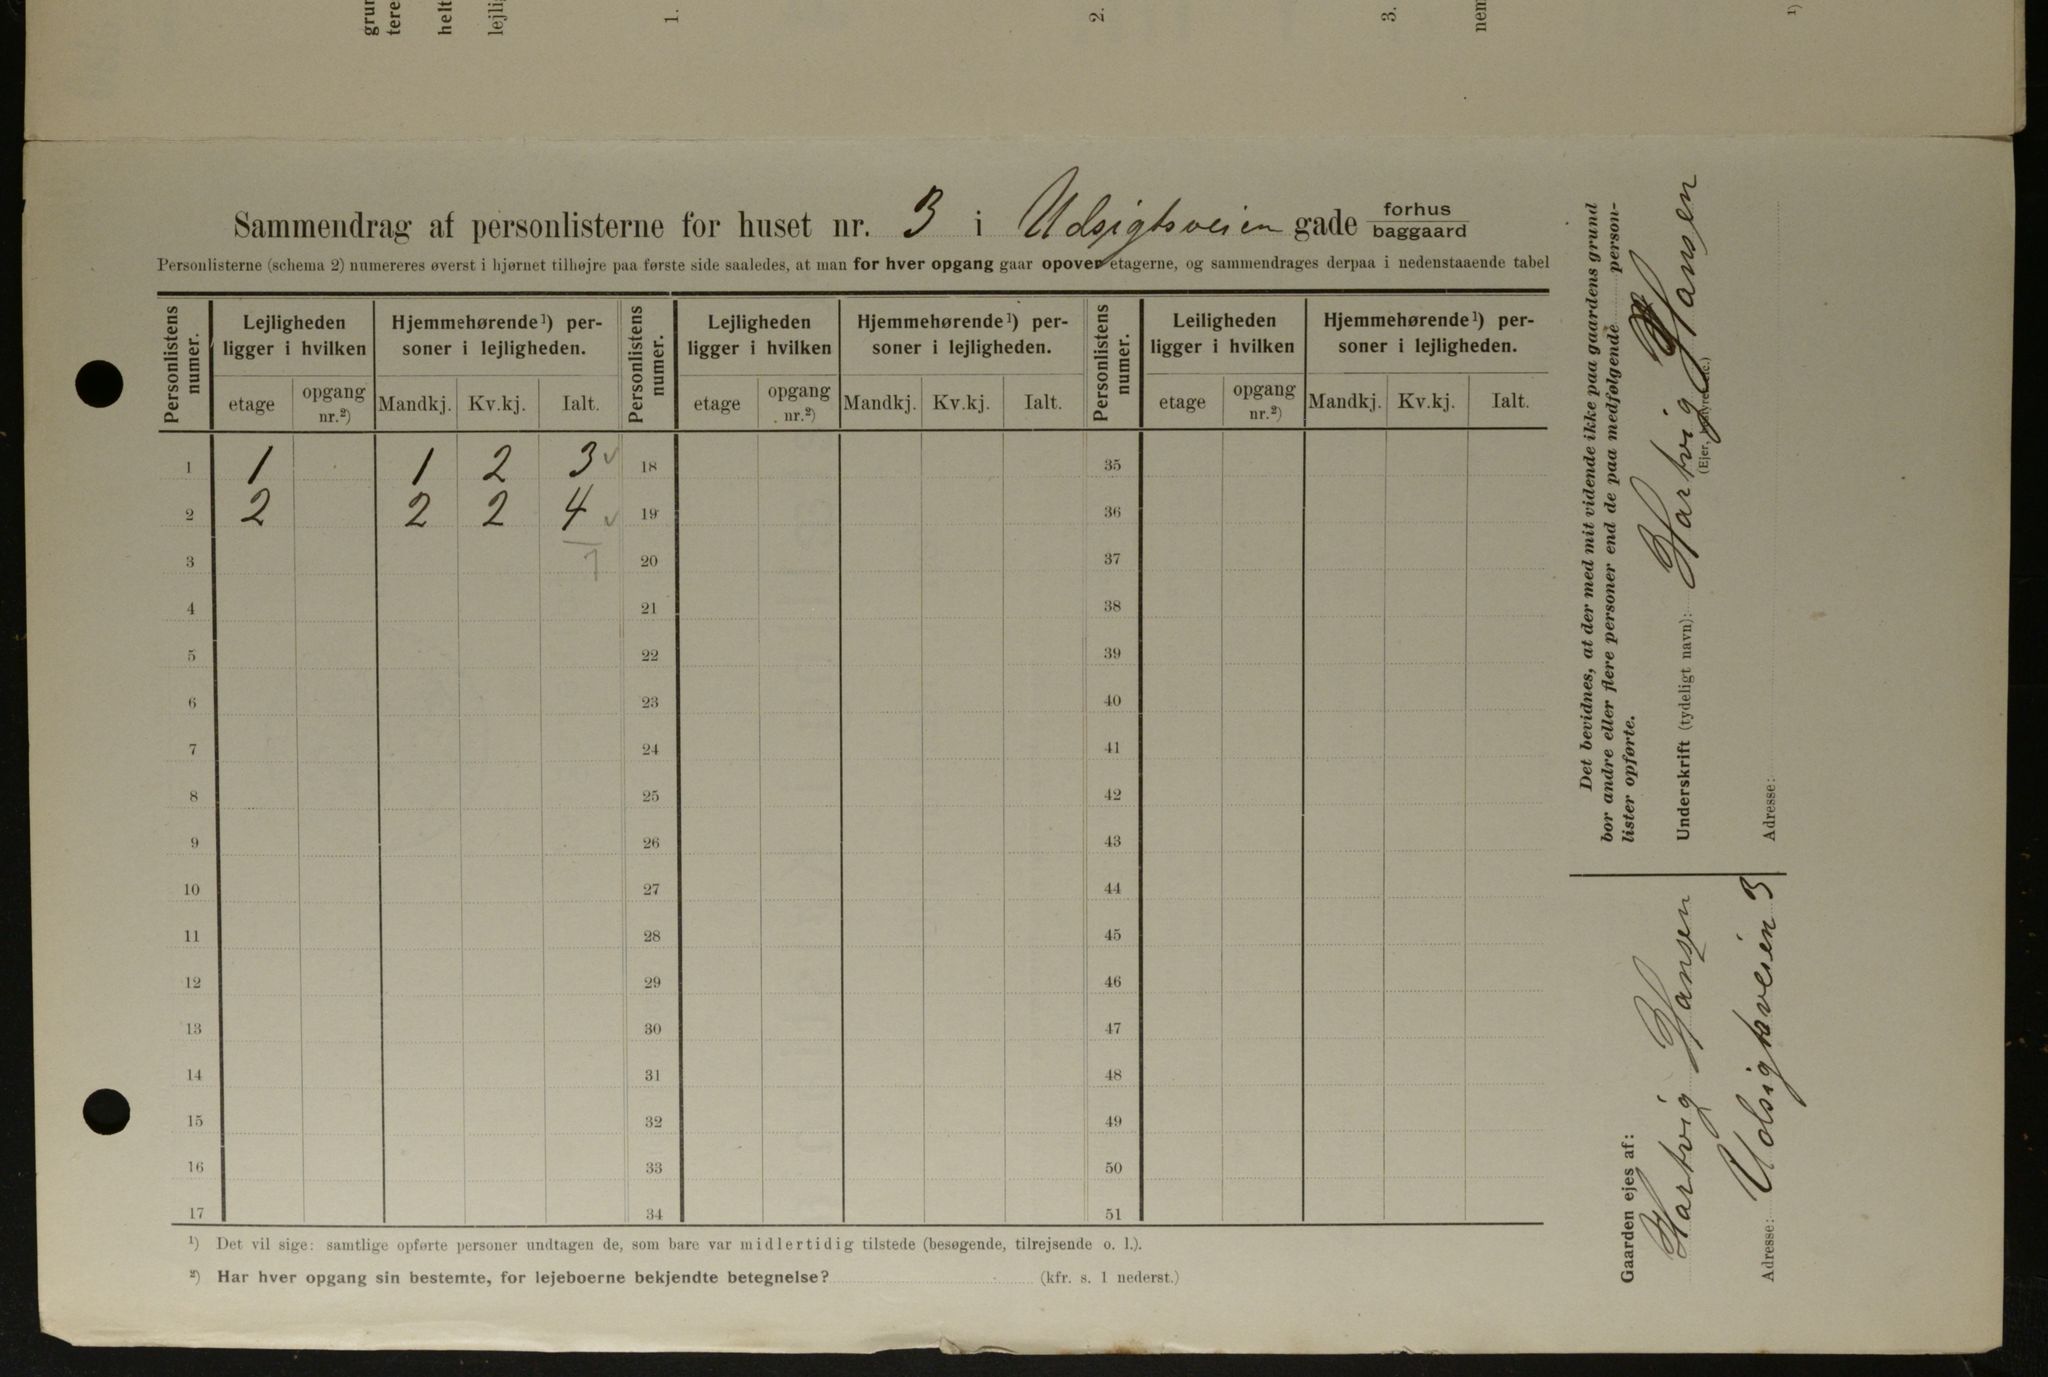 grun
tere
helt
lejli
1.
2.
3.
nem
1)
Sammendrag af personlisterne for huset nr. 3 i Udsigtsveien gade forhus baggaard
Personlisterne (schema 2) numereres øverst i hjørnet tilhøjre paa første side saaledes, at man for hver opgang gaar opover etagerne, og sammendrages derpaa i nedenstaaende tabel
Personlistens numer. Lejligheden ligger i hvilken Hjemmehørende1) personer i lejligheden. Personlistens numer. Lejligheden ligger i hvilken Hjemmehørende1) personer i lejligheden. Personlistens numer. Leiligheden ligger i hvilken Hjemmehørende1) personer i lejligheden.
etage opgang nr.2) Mandkj. Kv.kj. Ialt. etage opgang nr.2) Mandkj. Kv.kj. Ialt. etage opgang nr.2) Mandkj. Kv.kj. Ialt.
1 1 1 2 3 ✓ 18 35
2 2 2 2 4 ✓ 19 36
3 7 20 37
4 21 38
5 22 39
6 23 40
7 24 41
8 25 42
9 26 43
10 27 44
11 28 45
12 29 46
13 30 47
14 31 48
15 32 49
16 33 50
17 34 51
1) Det vil sige: samtlige opførte personer undtagen de, som bare var midlertidig tilstede (besøgende, tilrejsende o. l.).
2) Har hver opgang sin bestemte, for lejeboerne bekjendte betegnelse? (kfr. s. 1 nederst.)
Det bevidnes, at der med mit vidende ikke paa gaardens grund
bor andre eller flere personer end de paa medfølgende person-
lister opførte.
Underskrift (tydeligt navn): Hartvig Hansen
(Ejer, etc.)
Adresse:
Gaarden ejes af:
Hartvig Hansen
Adresse: Udsigtsveien 3